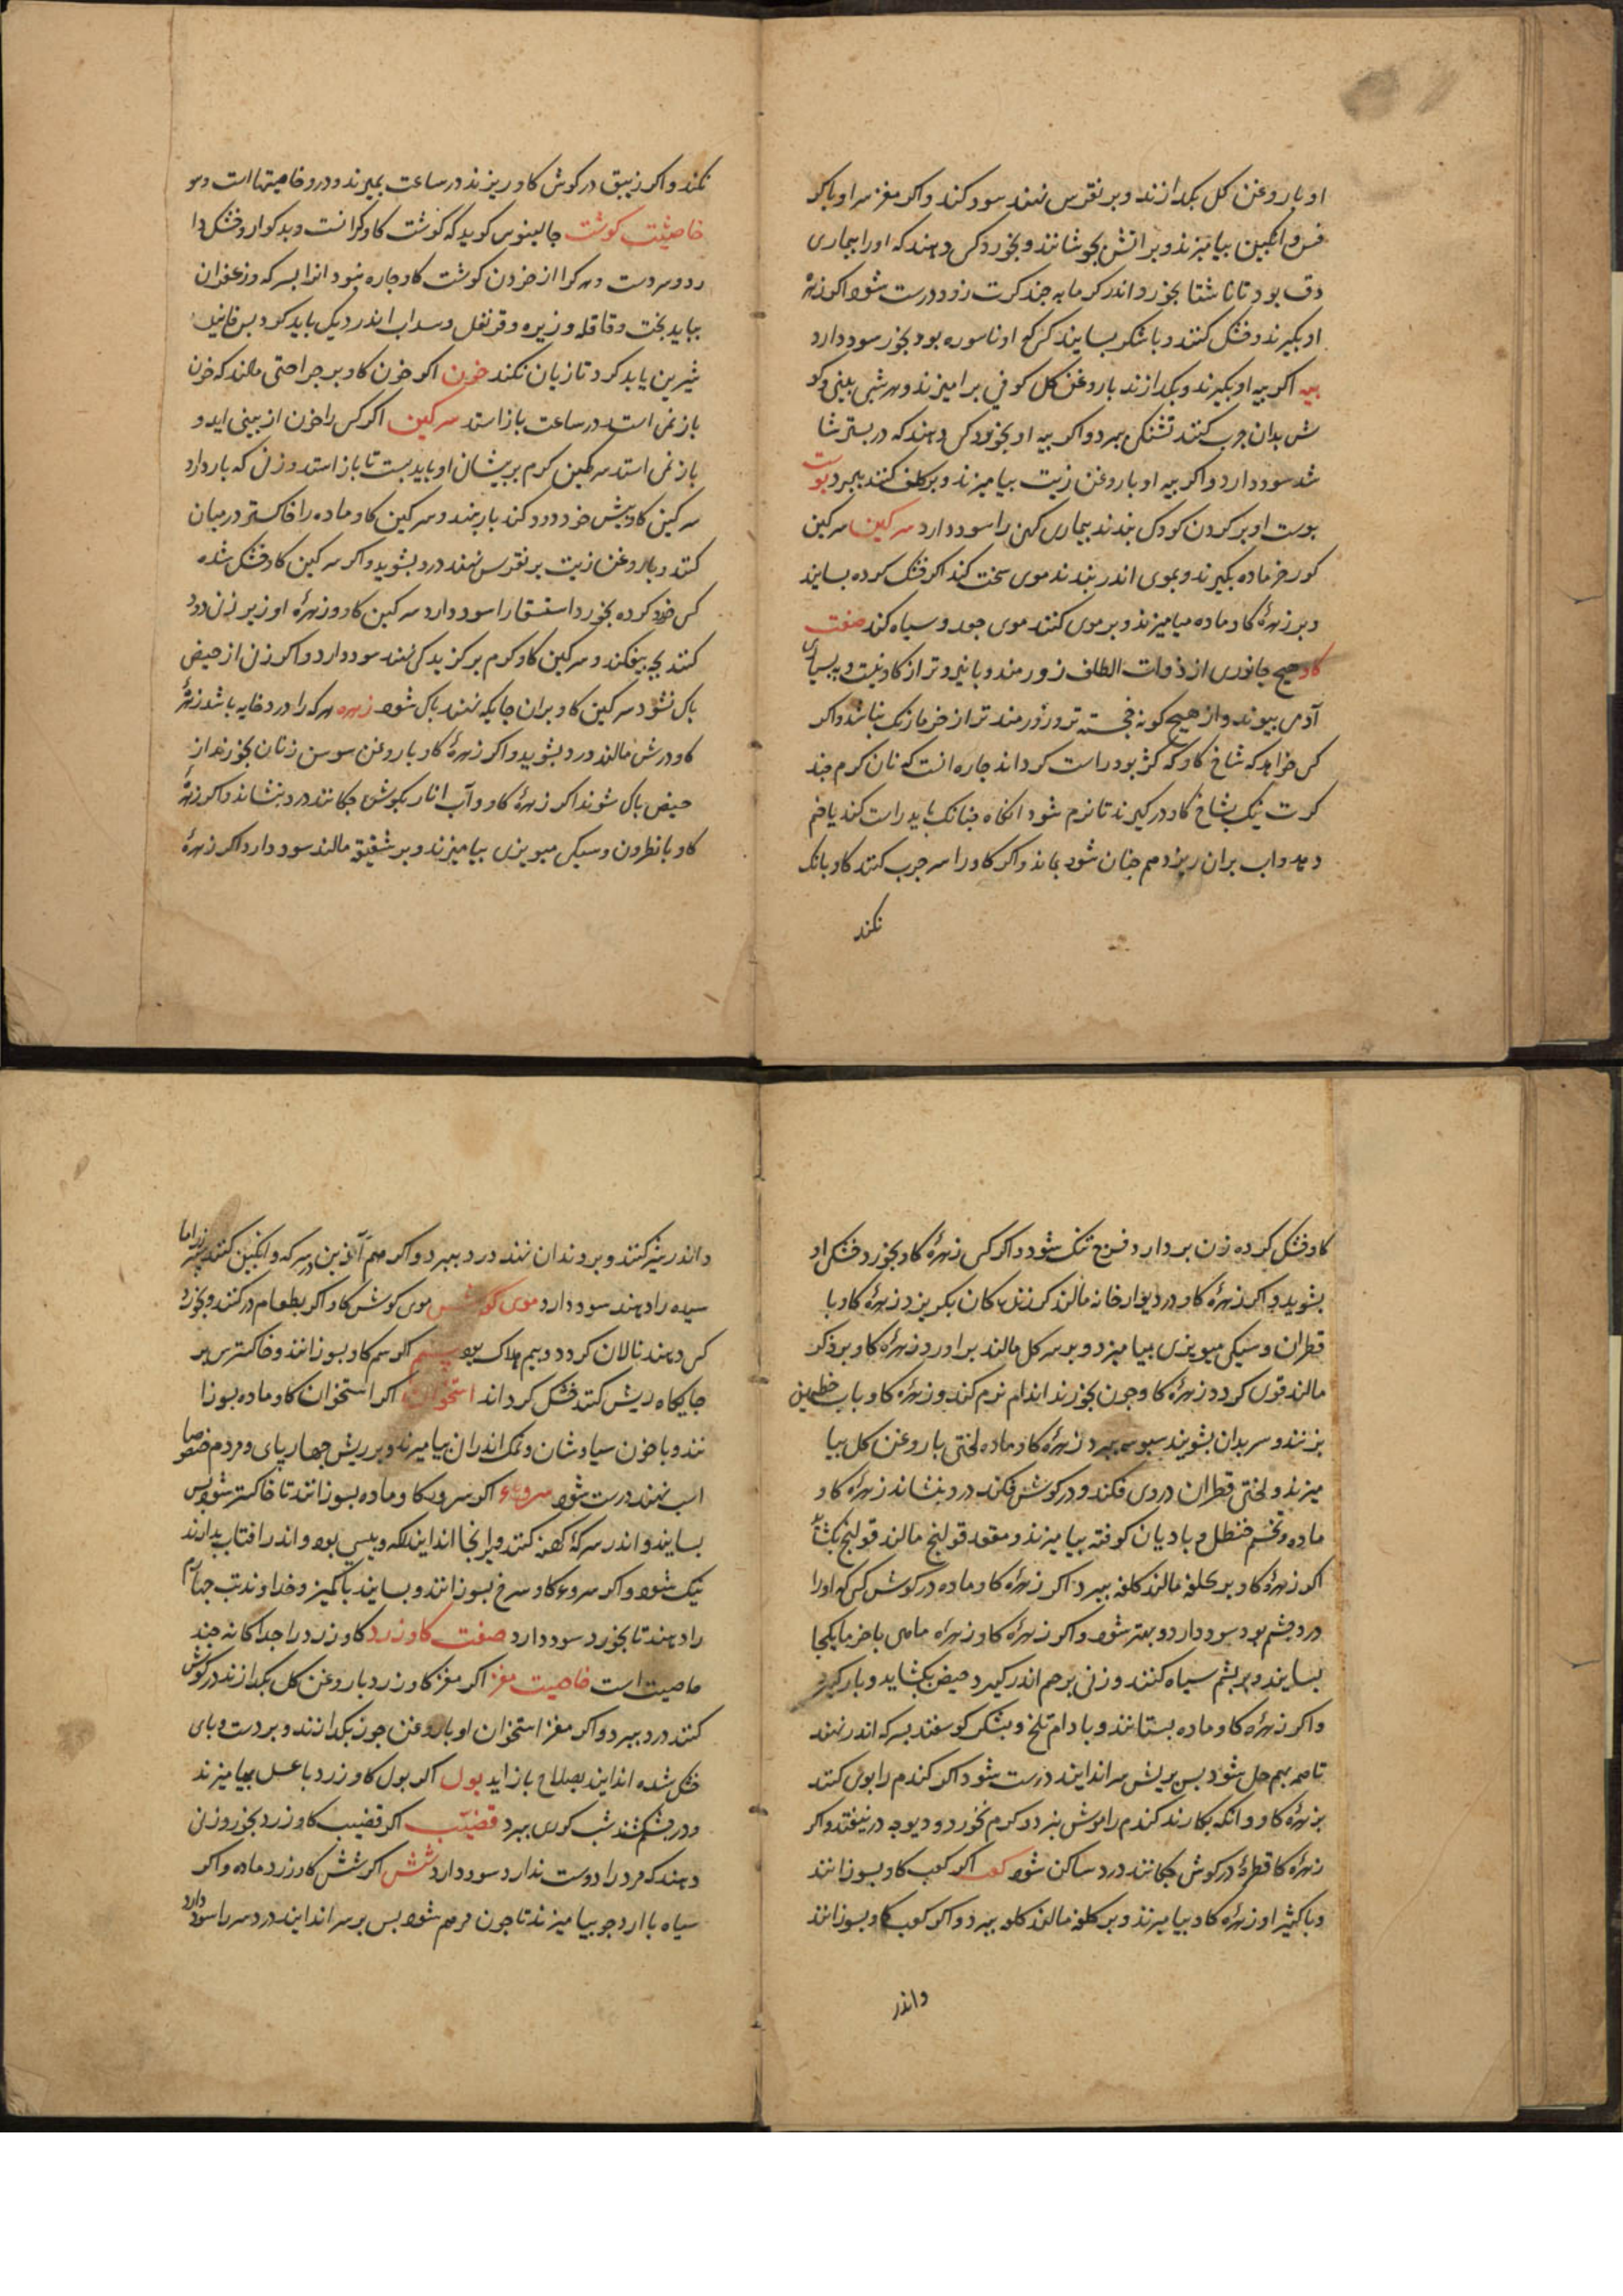 او با روغن کل بکدازند و بر نقرس نهند سود کند و اکر مغز سر او با کر
فس و انکبین بیامیزند و بر اتش بجوشانند و بخورد کس دهند که اورا بیماری
دق بود تا ناشتا بخورد و اندر کرمابه چند کرت زود درست شود اکر زهرهٔ
او بکیرند و خشک کنند و با شکر بسایند کسی که او ناسوره بود بخورد سود دارد
پیه اکر پیه او بکیرند و بکدازند با روغن کل کوفی برامیزند و هر شبی بینی و کو
ش بدان چرب کنند تشنکی ببرد و اکر پیه او بخورد کس دهند که در بستر شا
شد سود دارد و اکر پیه او با روغن زیت بیامیزند و بر کلف کنند ببرد پوست
پوست او بر کردن کودک بندند بیماری کهن را سود دارد سرکین سرکین
کورخر ماده بکیرند و بموی اندر بندند موی سخت کند اکر خشک کرده بسایند
و بر زهرهٔ کاو ماده بیامیزند و بر موی کنند موی جعد و سیاه کند صفت
کاو هیچ جانوری از ذوات الظلف زورمند و با نیرو تر از کاو نیست و به بسیاری
آدمی پیوند و از هیچ کونه خجسته تر و زورمند تر از خر ما زنک نباشد و اکر
کس خواهد که شاخ کاو که کژ بود راست کرداند چاره انست که نان کرم چند
کرت نیک بشاخ کاو درکیرند تا نرم شود انکاه چنانک باید راست کند یا خم
دهد و اب بران ریزد هم چنان شود بماند و اکر کاو را سر چرب کنند کاو بانک
نکند
نکند و اکر زیبق در کوش کاو ریزند در ساعت بمیرند و درو خاصیتها است و مو
خاصیت کوشت جالینوس کوید که کوشت کاو کرانست و بد کوار و خشک و ا
ردو سردست و هر کرا از خوردن کوشت کاو چاره نبود انرا بسرکه و زعفران
بباید پخت و قاقله و زیره و قرنفل و سداب اندر دیک باید کرد پس فانید
شیرین باید کرد تا زیان نکند خون اکر خون کاو بر جراحتی مالند که خون
باز نمی استد در ساعت باز استد سرکین اکر کس را خون از بینی اید و
باز نمی استد سرکین کرم بر پیشان او باید بست تا باز استد و زن که بار دارد
سرکین کاو پیش خود دود کند بار بنهد و سرکین کاو ماده را خاکستر در میان
کنند و با روغن زیت بر نقرس نهند درد بنشوید و اکر سرکین کاو خشک شده
کس خود کرده بخورد استسقا را سود دارد سرکین کاو و زهرهٔ او زیر زن دود
کنند بچه بیفکند و سرکین کاو کرم بر کزیدکی نهند سود دارد و اکر زن از حیض
پاک نشود سرکین کاو بران جایکه نهند پاک شود زهره هر که را درد خایه باشد زهرهٔ
کاو درش مالند درد بشوید و اکر زهرهٔ کاو با روغن سوسن زنان بخورند از
حیض پاک شوند اکر زهرهٔ کاو و آب انار بکوش چکانند درد بنشاند و اکر زهرهٔ
کاو با نطرون و سیکی مویزی بیامیزند و بر شقیقه مالند سود دارد اکر زهرهٔ
کاو خشک کرده زن بردارد فرج تنک شود و اکر کس زهرهٔ کاو بخورد خشک او
بشوید و اکر زهرهٔ کاو در دیوار خانه مالند کزندکان بکریزد زهرهٔ کاو با
قطران و سیکی مویزی بیامیزد و بر سر کل مالند براورد زهرهٔ کاو بر ذکر
مالند قوی کردد زهرهٔ کاو چون بخورند اندام نرم کند و زهرهٔ کاو باب خطمی
بزنند و سر بدان بشویند سبوسه ببرد زهرهٔ کاو ماده لختی با روغن کل بیا
میزند و لختی قطران دروی فکند و در کوش فکند درد بنشاند زهرهٔ کاو
ماده و تخم حنظل و بادیان کوفته بیامیزند و مقعد قولنج مالند قولنج بکشاید
اکر زهرهٔ کاو بر کلفه مالند کلفه ببرد اکر زهرهٔ کاو ماده در کوش کس که اورا
درد چشم بود سود دارد و بهتر شود و اکر زهرهٔ کاو و زهره ماهی با خرما یکجا
بسایند و بر پشم سیاه کنند و زنی برحم اندر کیرد حیض بکشاید و بار کیرد
و اکر زهره کاو ماده بستانند و بادام تلخ و پشکر کوسفند بسرکه اندر نهند
تا همه بهم حل شود پس بر ریش سر اندایند درست شود اکر کندم را بوی کنند
بزهرهٔ کاو و انکه بکارند کندم را موش نبرد و کرم نخورد و دیوچه در نیفتد و اکر
زهرهٔ کا قطرهٔ در کوش چکانند درد ساکن شود کعب اکر کعب کاو بسوزانند
و با کثیرا و زهره کاو بیامیزند و بر کلفه مالند کلفه ببرد و اکر کعب کاو بسوزانند
واندر
و اندر بینه کنند و بر دندان نهند درد ببرد و اکر هم ازین در سرکه و انکبین کنند سپرز اما
سیده را دهند سود دارد موی کوشش موی کوش کاو اکر بطعام در کنند و بخورد
کس دهند نالان کردد و بیم هلاک بود سم اکر سم کاو بسوزانند و خاکسترش بر
جایکاه ریش کنند خشک کرداند استخوان اکر استخوان کاو ماده بسوزا
نند و با خون سیاوشان و نمک اندران بیامیزند و بر ریش چهارپای و مردم خصوصا
اسب نهند درست شود سروی اکر سروی کاو ماده بسوزانند تا خاکستر شود پس
بسایند و اندر سرکهٔ کهنه کنند و برانجا اندایند که پیس بود و اندر افتاب بدارند
نیک شود و اکر سروی کاو سرخ بسوزانند و بسایند با کمیز و خداوند تب چهارم
را دهند تا بخورد سود دارد صفت کاو زرد کاو زرد را جداکانه چند
خاصیت است خاصیت مغز اکر مغز کاو زرد با روغن کل بکدازند در کوش
کنند درد ببرد و اکر مغز استخوان او با روغن جوز بکدازند و بر دست و پای
خشک شده اندایند بصلاح باز اید بول اکر بول کاو زرد با عسل بیامیزند
و در چشم کشند شب کوری ببرد قضیب اکر قضیب کاو زرد بخورد زن
دهند که مرد را دوست ندارد سود دارد شش اکر شش کاو زرد ماده و اکر
سیاه با ارد جو بیامیزند تا چون مرهم شود پس بر سر اندایند درد سر را سود دارد